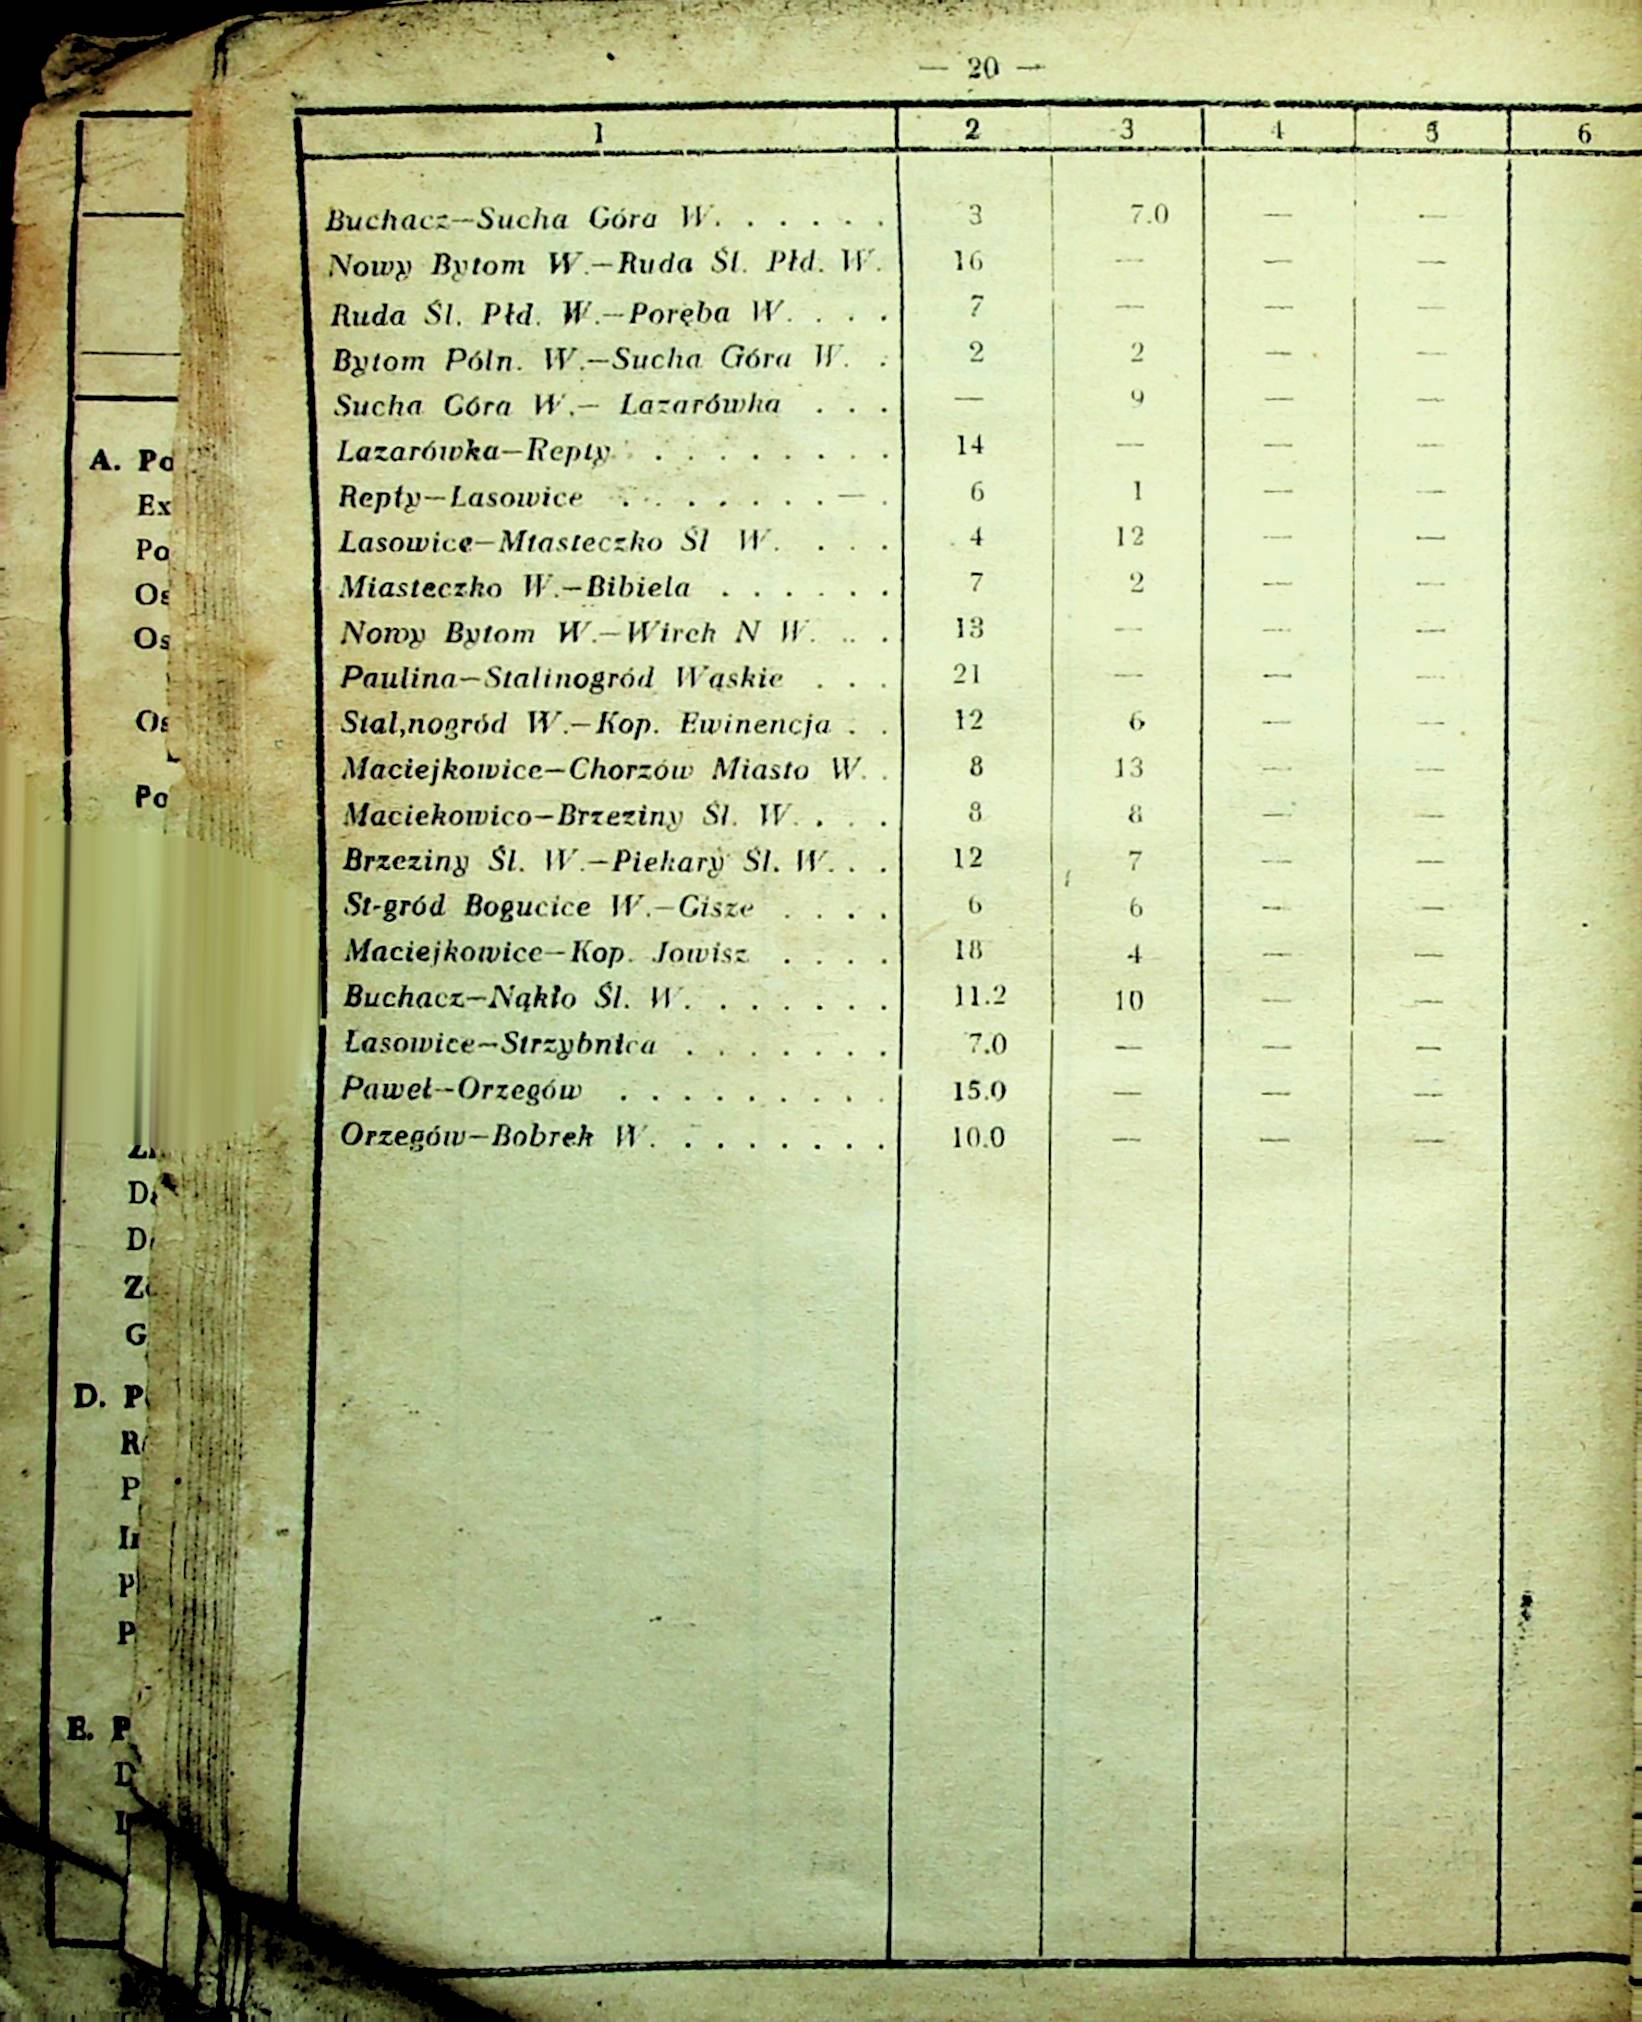 — 20 —
1 2 3 4 5 6
Buchacz—Sucha Góra W. . . . . . 3 7.0 — —
Nowy Bytom W.—Ruda Śl. Płd. W. 16 — — —
Ruda Śl. Płd. W.—Poręba W. . . . 7 — — —
Bytom Póln. W.—Sucha Góra W. . 2 2 — —
Sucha Góra W.— Lazarówka . . . — 9 — —
Lazarówka—Repty . . . . . . . . 14 — — —
Repty—Lasowice . . . . . . . — . 6 1 — —
Lasowice—Miasteczko Śl W. . . . 4 12 — —
Miasteczko W.—Bibiela . . . . . . 7 2 — —
Nowy Bytom W.—Wirek N W. . . . 13 — — —
Paulina—Stalinogród Wąskie . . . 21 — — —
Stal,nogród W.—Kop. Ewinencja . . 12 6 — —
Maciejkowice—Chorzów Miasto W. . 8 13 — —
Maciekowico—Brzeziny Śl. W. . . . 8 8 — —
Brzeziny Śl. W.—Piekary Śl. W. . . 12 7 — —
St-gród Bogucice W.—Gisze . . . . 6 6 — —
Maciejkowice—Kop. Jowisz . . . . 18 4 — —
Buchacz—Nąkło Śl. W. . . . . . . 11.2 10 — —
Łasowice—Strzybnica . . . . . . . 7.0 — — —
Paweł—Orzegów . . . . . . . . . 15.0 — — —
Orzegów—Bobrek W. . . . . . . . 10.0 — — —
A. Po
Ex
Po
Os
Os
Os
Po
D
D
Z
G
D. P
R
P
P
P
E. P
D